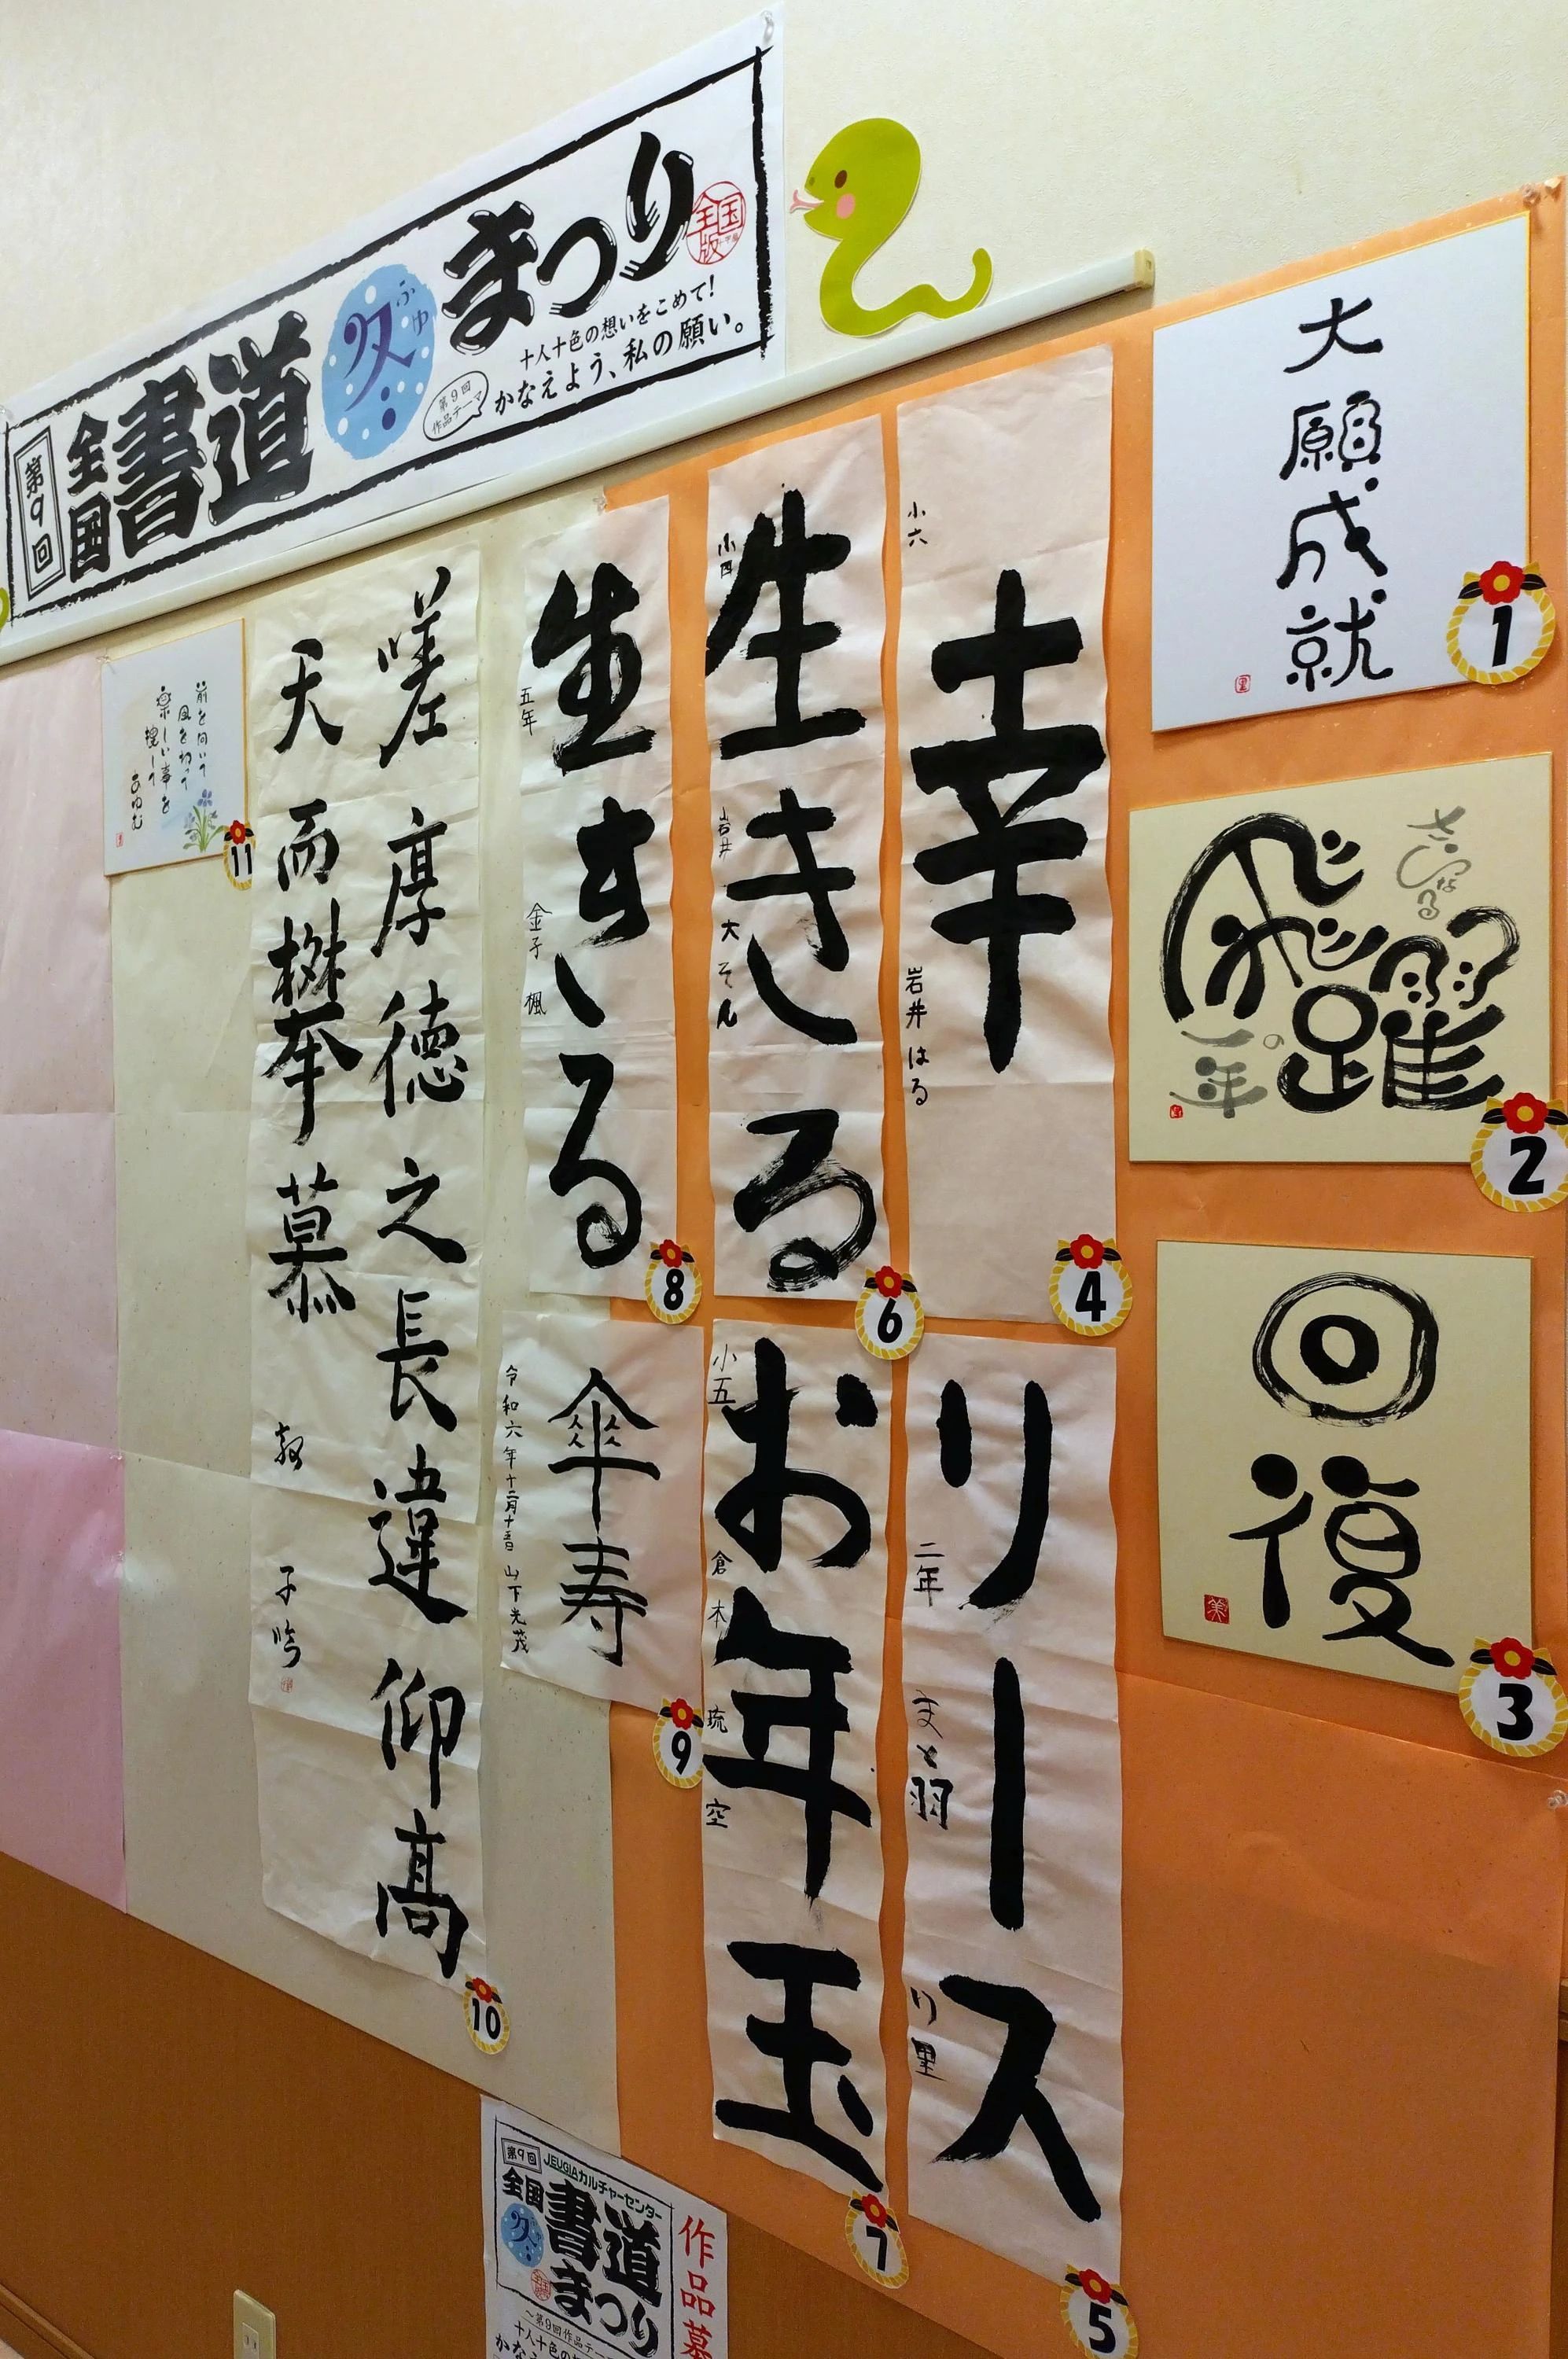 第9回
全国
書道
冬
ふゆ
まつり
全国版
第9回
作品テーマ
十人十色の想いをこめて!
かなえよう、私の願い。
大願成就
1
さらなる
飛躍
の
一年
2
回復
美
3
小六
幸
岩井 はる
4
リース
二年
り里
5
小四
生きる
岩井
6
小五
お年玉
倉木 琉空
7
生きる
五年
金子 楓
8
傘寿
令和六年十二月十五日 山下光茂
9
嗟厚徳之長違仰高
天而
慕
10
前を向いて
風を切って
楽しい事を
探して
あゆむ
11
第9回
JEUGIAカルチャーセンター
全国
書道
冬
まつり
〜第9回作品テー
十人十色の
かな
作品募